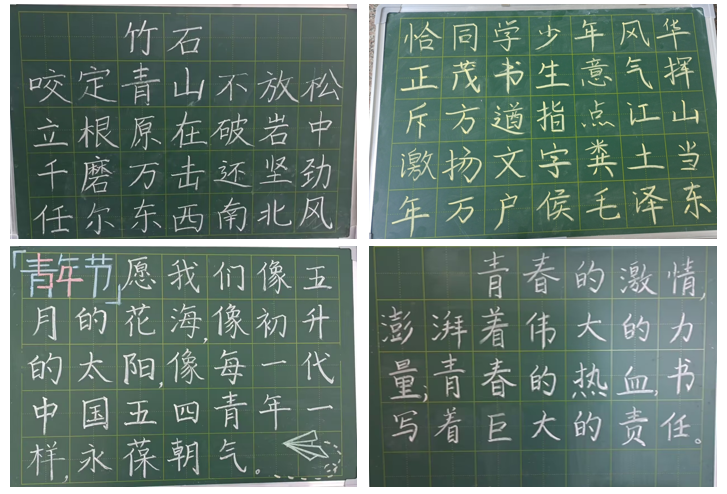 竹石
咬定青山不放松
立根原在破岩中
千磨万击还坚劲
任尔东西南北风
恰同学少年风华
正茂书生意气挥
斥方遒指点江山
激扬文字粪土当
年万户侯毛泽东
「青年节」愿我们像五
月的花海,像初升
的太阳,像每一代
中国五四青年一
样,永葆朝气。
青春的激情,
澎湃着伟大的力
量;青春的热血,书
写着巨大的责任。